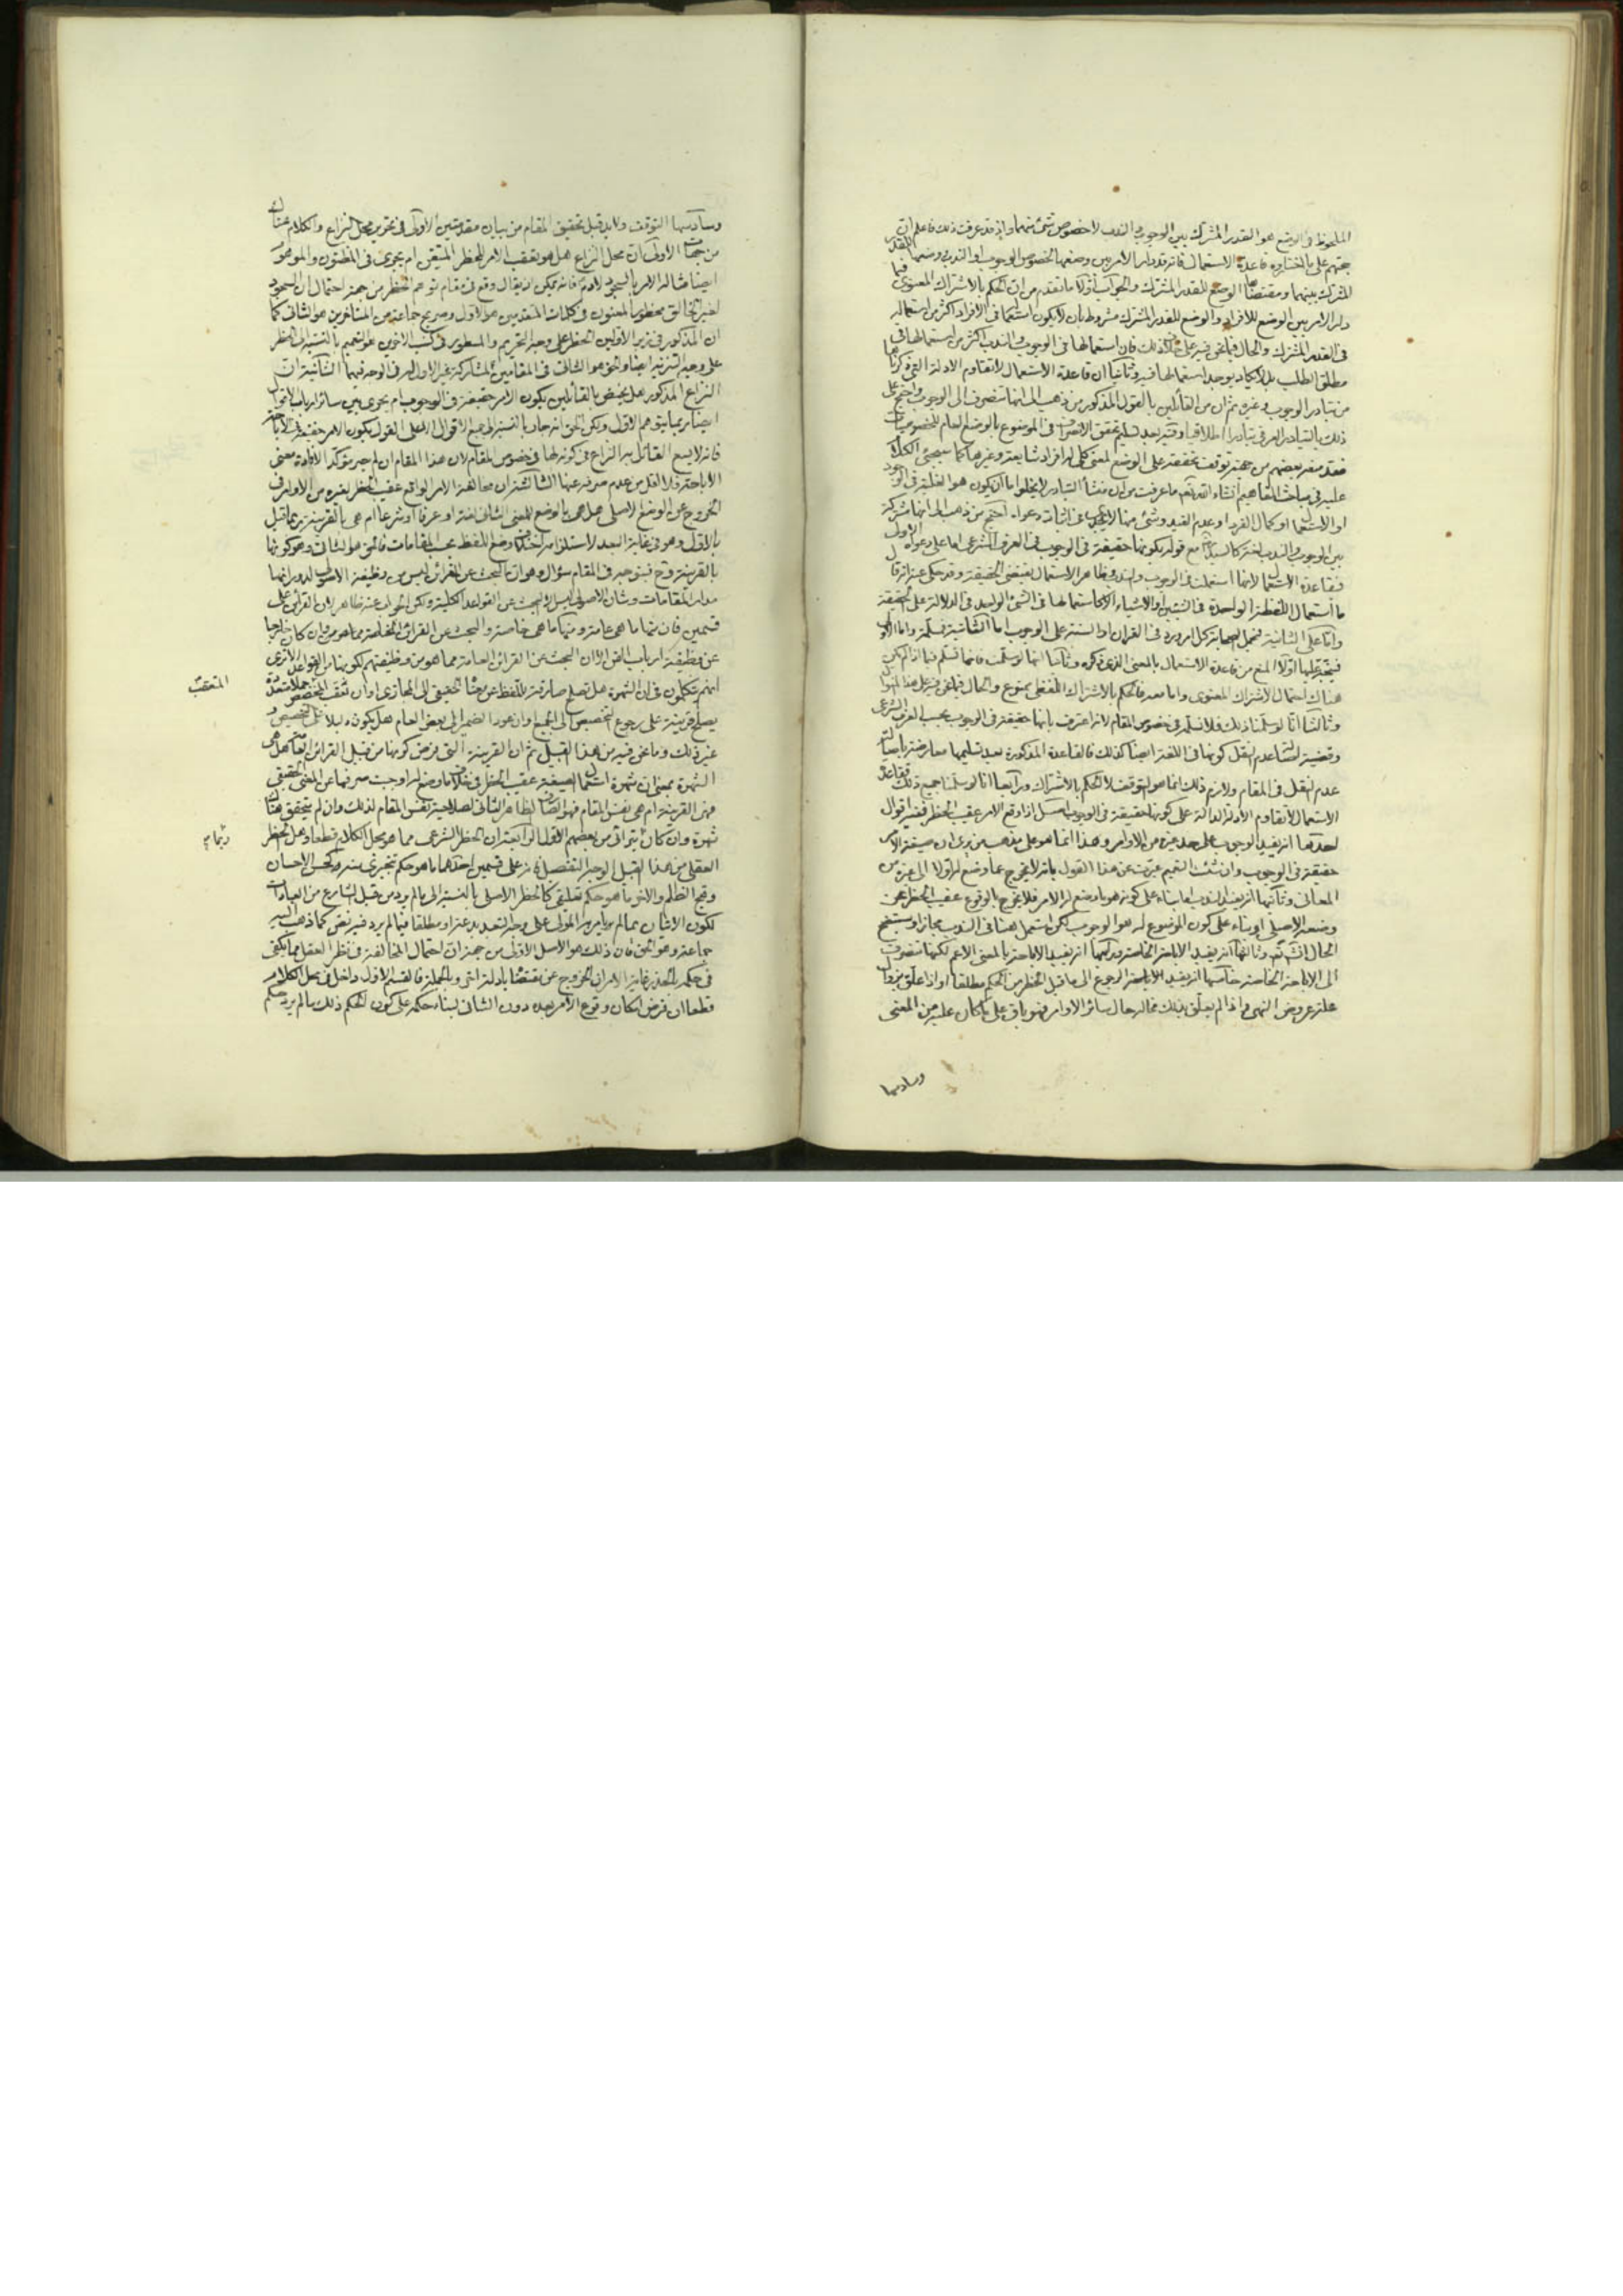 الملحوظ في الوضع هو القدر المشترك بين الوجوب والندب لا خصوص شئ منهما واذ قد عرفت ذلك فاعلم ان
حجتهم على ما اختاروه قاعدة الاستعمال فانه قد دار الامر بين وضعها لخصوص الوجوب او الندب ووضعها للقدر
المشترك بينهما ومقتضاها الوضع للقدر المشترك والجواب اولا ما تقدم من ان الحكم بالاشتراك المعنوى فيما
دار الامر بين الوضع للافراد والوضع للقدر المشترك مشروط بان لا يكون استعماله في الافراد اكثر من استعماله
في القدر المشترك والحال فيما نحن فيه على خلاف ذلك فان استعمالها في الوجوب والندب اكثر من استعمالها في
مطلق الطلب بل لا يكاد يوجد استعمالها فيه وثانيا ان قاعدة الاستعمال لا تقاوم الادلة التي ذكرناها
من تبادر الوجوب وغيره ثم ان من القائلين بالقول المذكور من ذهب الى انها تنصرف الى الوجوب واحتج على
ذلك بالتبادر العرفي تبادرا اطلاقيا وفيه بعد تسليم تحقق الانصراف في الموضوع بالوضع العام للخصوصيات
فقد منعه بعضهم من جهة توقف تحققه على الوضع لمعنى كلي له افراد شايعة وغيرها كما سيجئ الكلام
عليه في مباحث المفاهيم انشاء الله تعالى ما عرفت من ان منشأ التبادر لا يخلو اما ان يكون هو الغلبة في الوجود
او الاستعمال او كمال الفرد او عدم القيد وشئ منها لا يجدى في اثبات دعواه احتج من ذهب الى انها مشتركة
بين الوجوب والندب لغة كالسيد مع قوله بكونها حقيقة في الوجوب في العرف الشرعي اما على دعواه الاولى
فبقاعدة الاستعمال لانها استعملت في الوجوب والندب وظاهر الاستعمال يقتضي الحقيقة وقد حكى عنه انه قال
ما استعمال اللفظة الواحدة في الشيئين او الاشياء الا كاستعمالها في الشئ الواحد في الدلالة على الحقيقة
واما على الثانية فبحمل الصحابة كل امر ورد في القران او السنة على الوجوب اما الثانية فمسلمة واما الاولى
فيتجه عليها اولا المنع من قاعدة الاستعمال بالمعنى الذي ذكره وثانيا انها لو سلمت فانما تسلم فيما اذا لم يكن
هناك احتمال الاشتراك المعنوى واما معه فالحكم بالاشتراك اللفظي ممنوع والحال فيما نحن فيه على هذا المنوال
وثالثا انا لو سلمنا ذلك فلا نسلم في خصوص المقام لانه اعترف بانها حقيقة في الوجوب بحسب العرف الشرعي
وقضية اصالة عدم النقل كونها في اللغة ايضا كذلك فالقاعدة المذكورة بعد تسليمها معارضة باصالة
عدم النقل في المقام ولازم ذلك انما هو التوقف لا الحكم بالاشتراك ورابعا انا لو سلمنا جميع ذلك فقاعدة
الاستعمال لا تقاوم الادلة الدالة على كونها حقيقة في الوجوب اصل اذا وقع الامر عقيب الحظر ففيه اقوال
احدها انه يفيد الوجوب على حد غيره من الاوامر وهذا انما هو على مذهب من يرى ان صيغة الامر
حقيقة في الوجوب وان شئت التعميم عبرت عن هذا القول بانه لا يخرج عما وضع له اولا الى غيره من
المعاني وثانيها انه يفيد الندب اما بناء على كونه هو ما وضع له الامر فلا يخرج بالوقوع عقيب الحظر عن
وضعه الاصلي او بناء على كون الموضوع له هو الوجوب لكن استعمل هنا في الندب مجازا وسيتضح
الحال انشاء الله تعالى وثالثها انه يفيد الاباحة الخاصة ورابعها انه يفيد الاباحة بالمعنى الاعم لكنها تنصرف
الى الاباحة الخاصة خامسها انه يفيد الاباحة الرجوع الى ما قبل الحظر من الحكم مطلقا او اذا علق بزوال
علة عروض النهي واذا لم يعلق بذلك فحاله حال سائر الاوامر فهو باق على ما كان عليه من المعنى
وسادسها
وسادسها التوقف ولا بد قبل تحقيق المقام من بيان مقدمتين الاولى في تحرير محل النزاع والكلام هنا
من جهات الاولى ان محل النزاع هل هو تعقب الامر للحظر المتيقن ام يجرى في المظنون والموهوم
ايضا مثاله الامر بالسجود لادم فانه يمكن ان يقال وقع في مقام توهم الحظر من جهة احتمال ان السجود
لغير الخالق محظور المعنون في كلمات المتقدمين هو الاول وصريح جماعة من المتاخرين هو الثاني كما
ان المذكور في زبر الاولين الحظر على وجه التحريم والمسطور في كتب الاخرين هو التعميم بالنسبة الى الحظر
على وجه التنزيه ايضا والحق هو الثاني في المقامين لمشاركة غير الاول له في الوجه فيهما الثانية ان
النزاع المذكور هل يختص بالقائلين بكون الامر حقيقة في الوجوب ام يجرى بين سائر ارباب الاقوال
ايضا ربما يتوهم الاول ولكن الحق انه جار بالنسبة الى جميع الاقوال الا على القول بكون الامر حقيقة في الاباحة
فانه لا يسع القائل به النزاع في كونه لها في خصوص المقام لان هذا المقام ان لم يصر مؤكدا لافادة معنى
الاباحة فلا اقل من عدم صرفه عنها الثالثة ان مخالفة الامر الواقع عقيب الحظر لغيره من الاوامر في
الخروج عن الوضع الاصلي هل هي بالوضع للمعنى الثاني لغة او عرفا او شرعا ام هي بالقرينة ربما قيل
بالاول وهو في غاية البعد لاستلزامه اختلاف وضع اللفظ بحسب المقامات فالحق هو الثاني وهو كونها
بالقرينة وح فيتوجه في المقام سؤال وهو ان البحث عن القرائن ليس من وظيفة الاصولي لدورانها
مدار المقامات وشان الاصولي ليس الا البحث عن القواعد الكلية ولكن الجواب عنه ظاهر لان القرائن على
قسمين فان منها ما هي عامة ومنها ما هي خاصة والبحث عن القرائن الخاصة مما هو من وان كان خارجا
عن وظيفة ارباب الفن الا ان البحث عن القرائن العامة مما هو من وظيفتهم لكونها من القواعد الا ترى
انهم يتكلمون في ان الشهرة هل تصلح صارفة للفظ عن معناه الحقيقي الى المجازى وان تعقب المخصص جملا متعددة
المتعقب
يصلح قرينة على رجوع التخصيص الى الجميع وان عود الضمير الى بعض العام هل يكون دليلا على التخصيص و
غير ذلك وما نحن فيه من هذا القبيل ثم ان القرينة التي فرض كونها من قبيل القرائن العامة هل هي
الشهرة بمعنى ان شهرة استعمال الصيغة عقيب الحظر في خلاف ما وضع له اوجبت صرفها عن المعنى الحقيقي
فهي القرينة ام هي نفس المقام فهو الصارف الظاهر الثاني لصلاحية نفس المقام لذلك وان لم يتحقق هناك
شهرة وان كان يترائى من بعضهم الاول الرابعة ان الحظر الشرعي مما هو محل الكلام قطعا وهل الحظر
العقلي من هذا القبيل الوجه التفصيل فانه على قسمين احدهما ما هو حكم تنجيزى منه كحسن الاحسان
وقبح الظلم والاخر ما هو حكم تعليقي كالحظر الاصلي بالنسبة الى ما لم يرد من قبل الشارع من العبادات
لكون الاتيان بما لم يامر به المولى على وجه التعبد بدعة او مطلقا فيما لم يرد فيه نص كما ذهب اليه
جماعة وهو الحق فان ذلك هو الاصل الاولى من جهة ان احتمال المخالفة في نظر العقل مما يكفي
في حكمه بالحذر غاية الامر ان الخروج عن مقتضاه بادلة اخرى وبالجملة فالقسم الاول داخل في محل الكلام
قطعا ان فرض امكان وقوع الامر بعده دون الثاني لبناء حكمه على كون الحكم ذلك ما لم يرد حكم